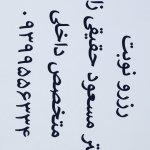 رزرو نوبت
تر مسعود حقیقی زا
متخصص داخلی
۰۹۳۹۹۵۵۶۳۳۴